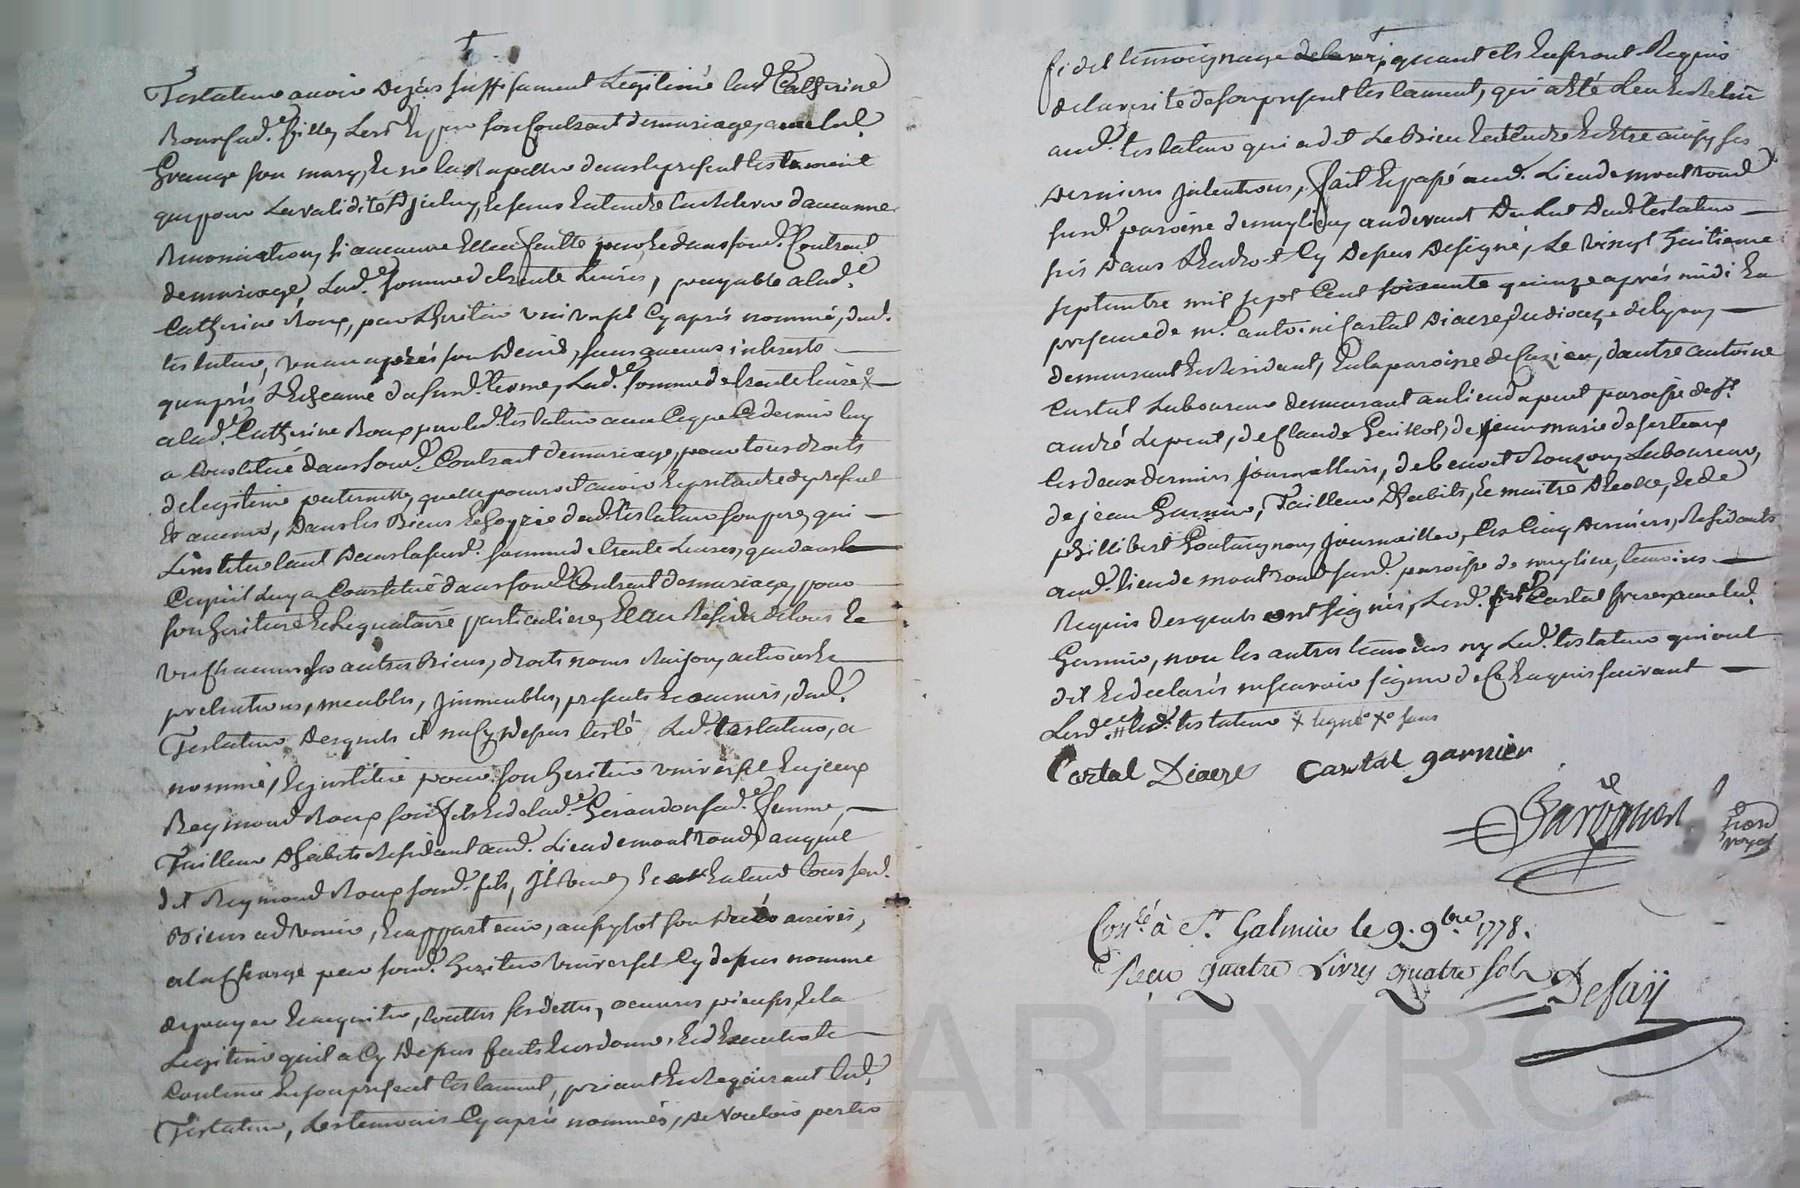 Testateur avoir dejás suffisament Legitimé lad.e Catherine
Roux sad.e fille, Lors et par son Contract de mariage, avec led.
Grange son mary, et ne la Rapeller dans le present testament
que pour La validité d'jceluy, le sans entendre l'ux delever d'aucune
Renonciation, si aucune Elle a faitte par, et dans son d. Contract
de mariage, Lad.e somme de trente Livres, payable a lad.e
Catherine Roux, par L'heritier universel Cy aprés nommé, dud.
testateur, un an aprés son decéds, sans aucuns interests
qu'aprés L'Echeance du susd. terme, Lad.e somme de trente livres
a lad.e Catherine Roux par led. testateur avec Ce que Ce dernier luy
a Constitué dans son d. Contract de mariage, pour tous droits
de legitime paternelle, quelle pourroit avoir et pretendre de present
et avenir, dans les Biens et hoyrie dud. testateur son pere, qui
L'institue tant dans la susd. somme de trente Livres, que dans
Ce qu'il Luy a Constitué dans son d. Contract de mariage, pour
son heritiere et Legataire particuliere, Et au Residu de tous et
uns Chacuns ses autres Biens, droits noms Raisons, actions et
pretentions, meubles, jmmeubles, presents et avenirs, dud.
Testateur desquels il n'a Cy depus testé, Led. testateur, a
nommé, et jnstitué pour son heritier universel Sieur
Reymond Roux son fils et de lad.e Giraudon sad.e femme,
Tailleur d'habits Residant aud. Lieu de montrond, auquel
dit Reymond Roux son d. fils, Il veut, et Entend tous ses d.
Biens advenir, et appartenir, aussytot son decéds arrivés,
a la Charge par son d. heritier universel Cy depus nommé
de payer et acquiter, touttes ses dettes, œuvres pieuses, et la
Legitime qu'il a Cy depus faits et ordonné, et d'Executer le
Contenu en son present testament, priant et Requérant led.
Testateur, Les temoins Cy aprés nommés, de vouloir porter
fidel temoignage de la veri, quant ils en seront Requis
de la verité de son present testament, qui a été Leu et Relu
aud. testateur qui a dit Le Bien Entendre et être ainsy ses
dernieres jntentions, fait et passé aud. Lieu de montrond
susd. paroisse de meylieu, au devant du Lit dud. testateur
pris dans L'endroit Cy depus designé, Le vingt huitieme
septembre mil sept Cent soixante quinze aprés midi En
presence de m.e antoine Cartal Diacre du dioceze de lyon,
demeurant et Residant, En la paroisse de Cuzieu, d'autre antoine
Cartal Laboureur demeurant au lieu du puit paroisse de St.
andré Le puit, de Claude, de jean marie
Les deux derniers journalliers, de benoit Rouzon, Laboureur,
de jean Garnier, Tailleur d'habits, et maitre d'Ecole, et de
phillibert journaillier, Les Cinq derniers, Residants
aud. lieu de montrond susd. paroisse de meylieu, temoins
Requis desquels ont signés, Lesd. Cartal freres avec led.
Garnier, non les autres temoins ny Led. testateur qui ont
dit et declarés ne scavoir signer de Ce Enquis suivant
Lesd. led. testateur x ligne x sans
Cartal Diacre Cartal garnier
Nore
royal
Con.lé à St. Galmier le 9. 9bre 1778.
Reçu quatre Livres quatre sols Desaÿ
CHAREYRON